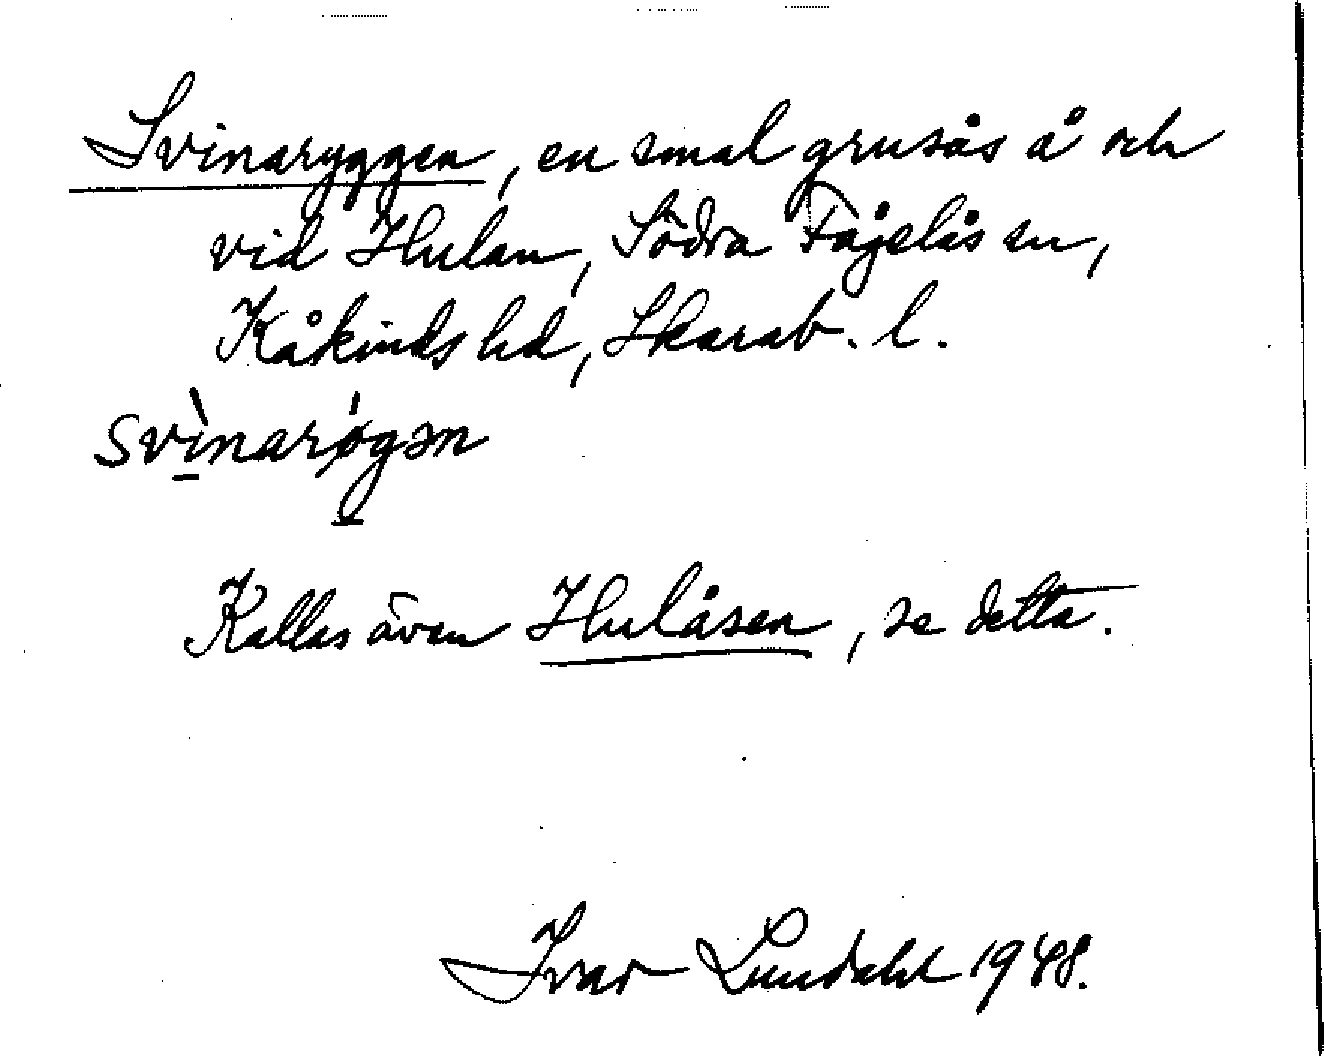 Svinaryggen, en smal grusås å och
vid Hulan, Södra Fågelås sn,
Kåkinds hd, Skarab. l.
svìnarǿgən
Kallas även Hulåsen, se detta.
Ivar Lundahl 1948.